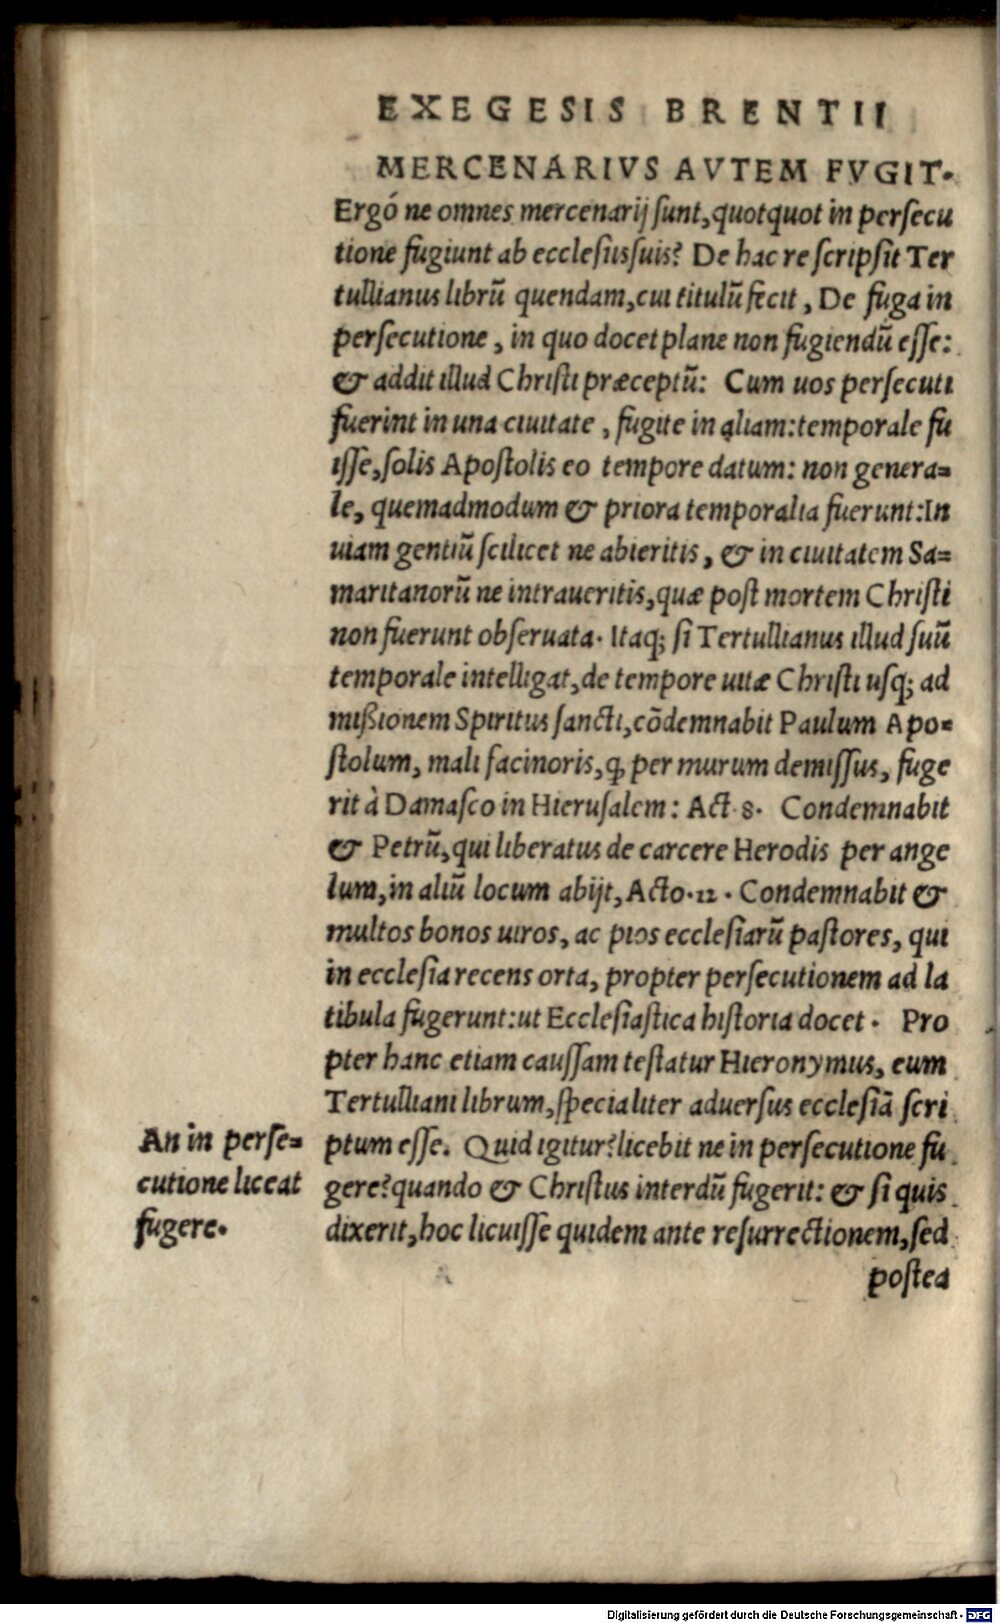 EXEGESIS BRENTII
MERCENARIVS AVTEM FVGIT.
Ergó ne omnes mercenarij ſunt, quotquot in perſecu
tione fugiunt ab eccleſiis ſuis? De hac re ſcripſit Ter
tullianus librũ quendam, cui titulũ fecit, De fuga in
perſecutione, in quo docet plane non fugiendũ eſſe:
& addit illud Chriſti præceptũ: Cum uos perſecuti
fuerint in una ciuitate, fugite in aliam: temporale fu
iſſe, ſolis Apoſtolis eo tempore datum: non genera=
le, quemadmodum & priora temporalia fuerunt: In
uiam gentiũ ſcilicet ne abieritis, & in ciuitatem Sa=
maritanorũ ne intraueritis, quæ poſt mortem Chriſti
non fuerunt obſeruata. Itaq; ſi Tertullianus illud ſuũ
temporale intelligat, de tempore uitæ Chriſti uſq; ad
mißionem Spiritus ſancti, cõdemnabit Paulum Apo=
ſtolum, mali facinoris, ꝙ per murum demiſſus, fuge
rit à Damaſco in Hieruſalem: Act. 8. Condemnabit
& Petrũ, qui liberatus de carcere Herodis per ange
lum, in aliũ locum abijt, Acto. 12. Condemnabit &
multos bonos uiros, ac pios eccleſiarũ paſtores, qui
in eccleſia recens orta, propter perſecutionem ad la
tibula fugerunt: ut Eccleſiaſtica hiſtoria docet. Pro
pter hanc etiam cauſſam teſtatur Hieronymus, eum
Tertulliani librum, ſpecialiter aduerſus eccleſiã ſcri
ptum eſſe. Quid igitur? licebit ne in perſecutione fu
gere? quando & Chriſtus interdũ fugerit: & ſi quis
dixerit, hoc licuiſſe quidem ante reſurrectionem, ſed
An in perſe=
cutione liceat
fugere.
poſtea
Digitalisierung gefördert durch die Deutsche Forschungsgemeinschaft - DFG